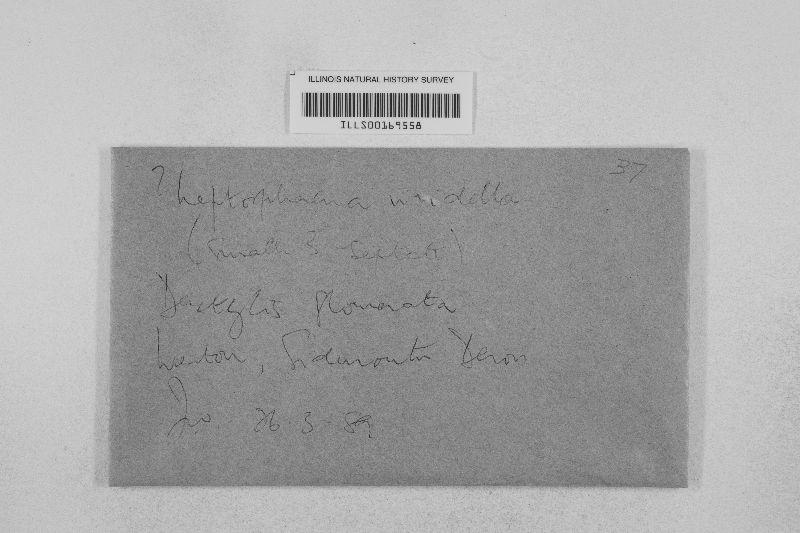 ILLINOIS NATURAL HISTORY SURVEY
ILLS00169558
37
? Leptosphaeria
(Small 3-septate)
Dactylis glomerata
Weston, Sidmouth Devon
26.3.89